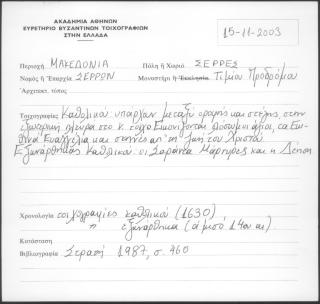 ΑΚΑΔΗΜΙΑ ΑΘΗΝΩΝ
ΕΥΡΕΤΗΡΙΟ ΒΥΖΑΝΤΙΝΩΝ ΤΟΙΧΟΓΡΑΦΙΩΝ
ΣΤΗΝ ΕΛΛΑΔΑ
15-11-2003
Περιοχή ΜΑΚΕΔΟΝΙΑ Πόλη ή Χωριό ΣΕΡΡΕΣ
Νομός ή Ἐπαρχία ΣΕΡΡΩΝ Μοναστήρι ή Ἐκκλησία Τιμίου Προδρόμου
Ἀρχιτεκτ. τύπος
Τοιχογραφίες Καθολικό: υπάρχαν μεταξύ οροφής και στέγης, στην
πλευρά στο τοίχο Εικονίζονται
Ευαγγέλια και σκηνές απ' τη ζωή του Χριστού
Εξωνάρθηκας Καθολικού: οι Σαράντα Μάρτυρες και η Δέηση
Χρονολογία τοιχογραφίες καθολικού (1630)
" εξωνάρθηκα (α' μισό 14ου αι.)
Κατάσταση
Βιβλιογραφία Στρατή 1987, σ. 460